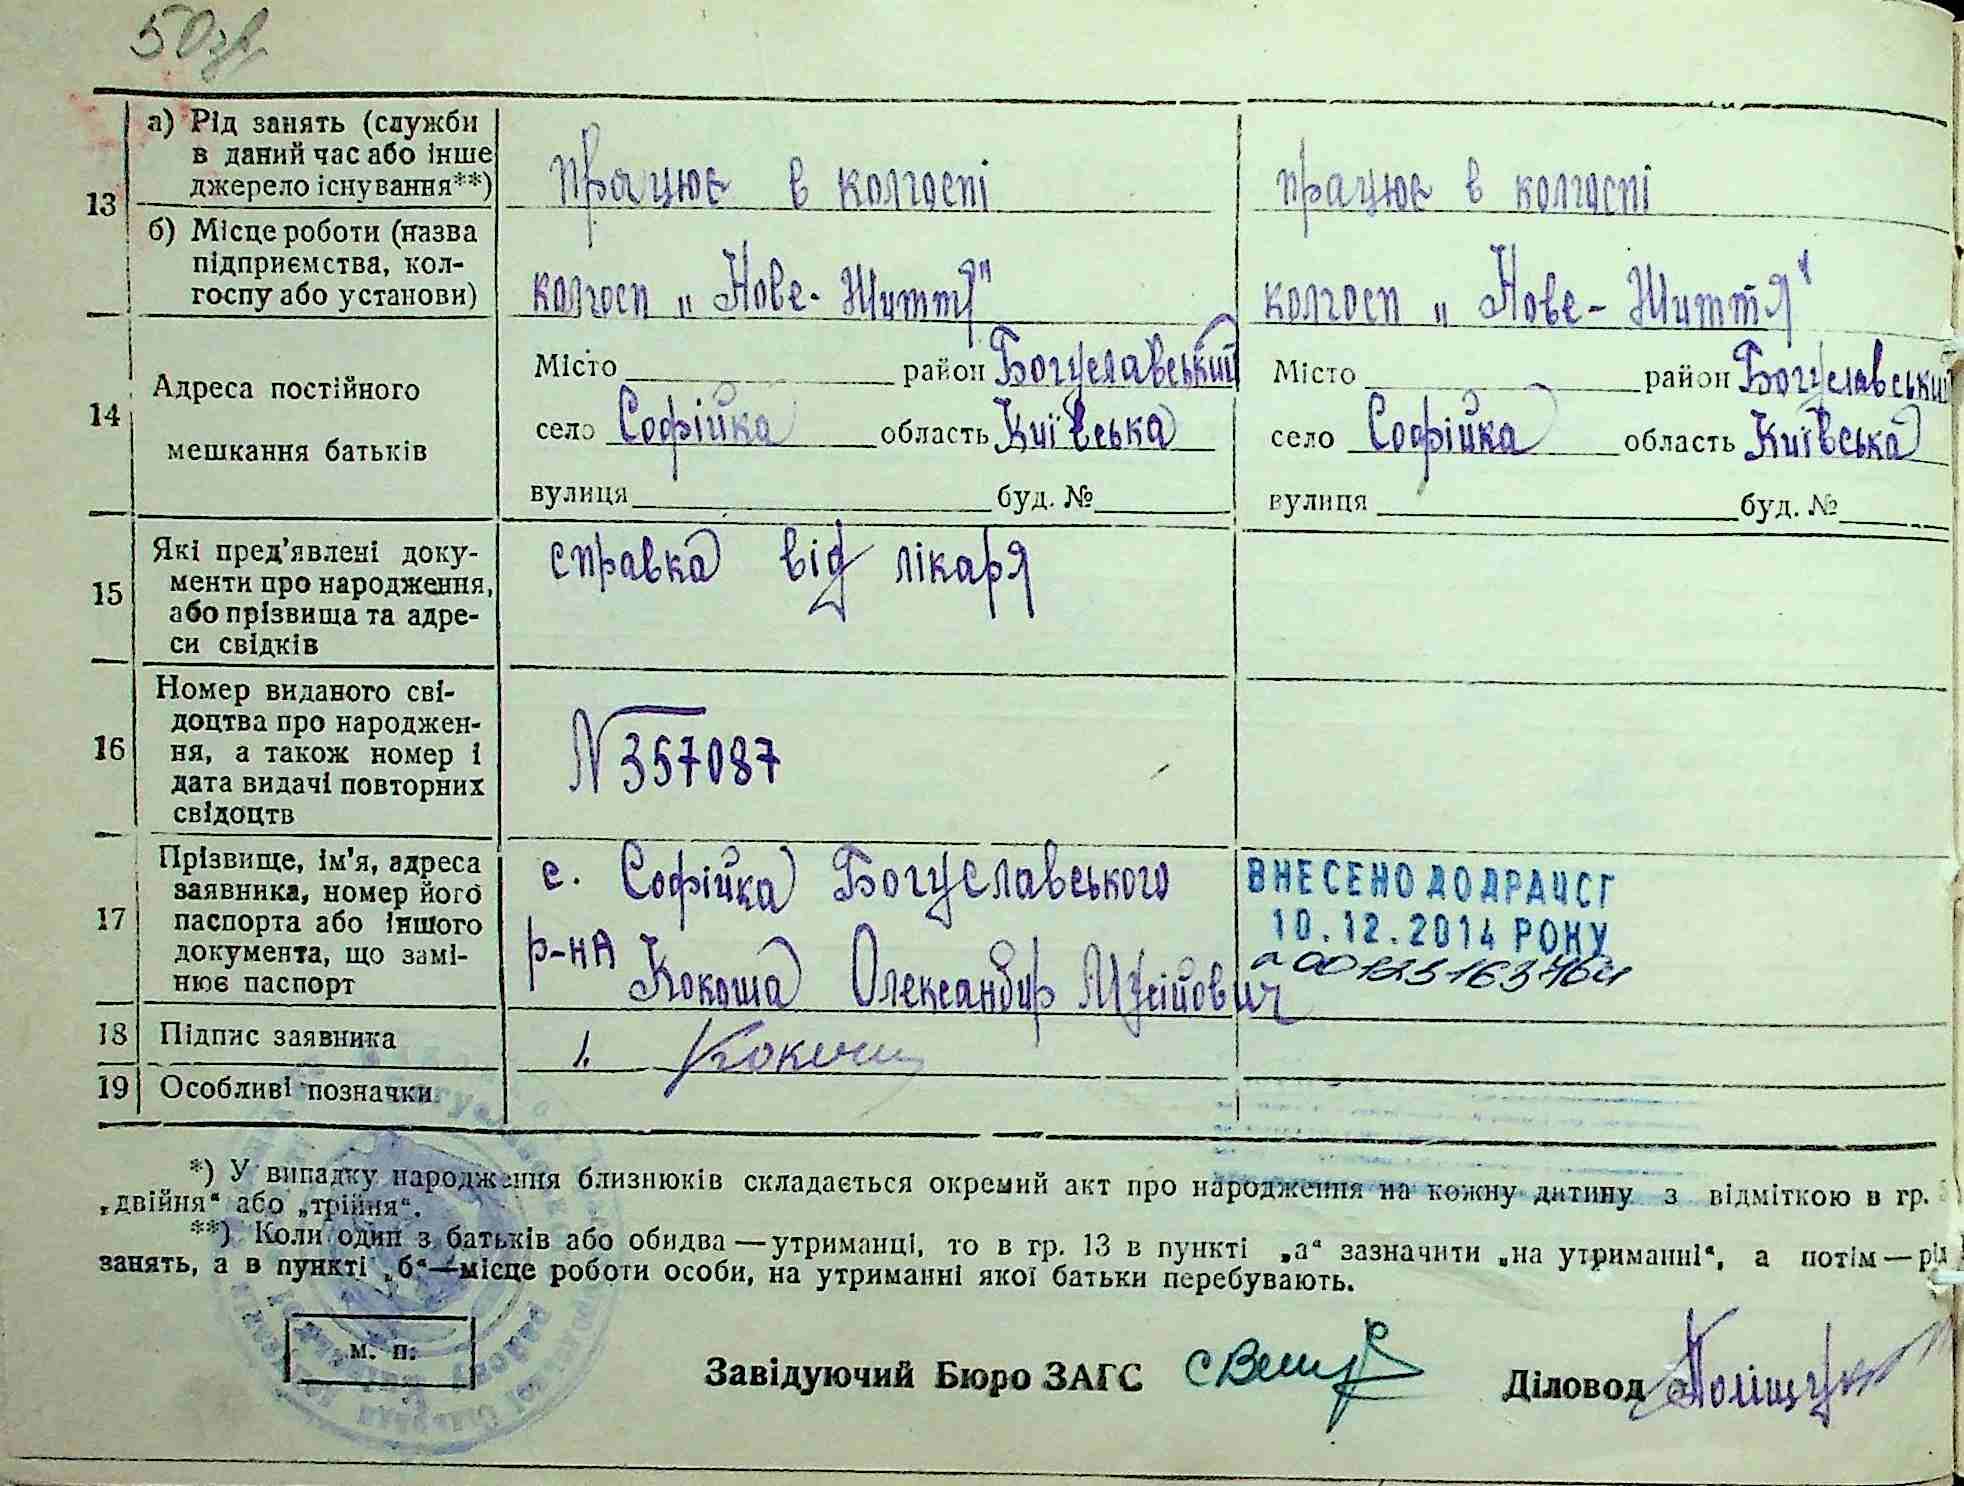 50зв
13
а) Рід занять (служби
в даний час або інше
джерело існування**)
працює в колгоспі
працює в колгоспі
б) Місце роботи (назва
підприємства, кол-
госпу або установи)
колгосп „Нове-Життя"
колгосп „Нове-Життя"
14
Адреса постійного
мешкання батьків
Місто район Богуславський
село Софійка область Київська
вулиця буд. №
Місто район Богуславський
село Софійка область Київська
вулиця буд. №
15
Які пред’явлені доку-
менти про народження,
або прізвища та адре-
си свідків
справка від лікаря
16
Номер виданого сві-
доцтва про народжен-
ня, а також номер і
дата видачі повторних
свідоцтв
N 357087
17
Прізвище, ім’я, адреса
заявника, номер його
паспорта або іншого
документа, що замі-
нює паспорт
с. Софійка Богуславського
р-на Кокоша Олександр Мусійович
ВНЕСЕНО ДО ДРАЦСГ
10.12.2014 РОКУ
18
Підпис заявника
1. Кокоша
19
Особливі позначки
*) У випадку народження близнюків складається окремий акт про народження на кожну дитину з відміткою в гр.
„двійня“ або „трійня“.
**) Коли один з батьків або обидва — утриманці, то в гр. 13 в пункті „а“ зазначити „на утриманні“, а потім — рід
занять, а в пункті „б“ — місце роботи особи, на утриманні якої батьки перебувають.
м. п.
Завідуючий Бюро ЗАГС
Діловод Поліщук